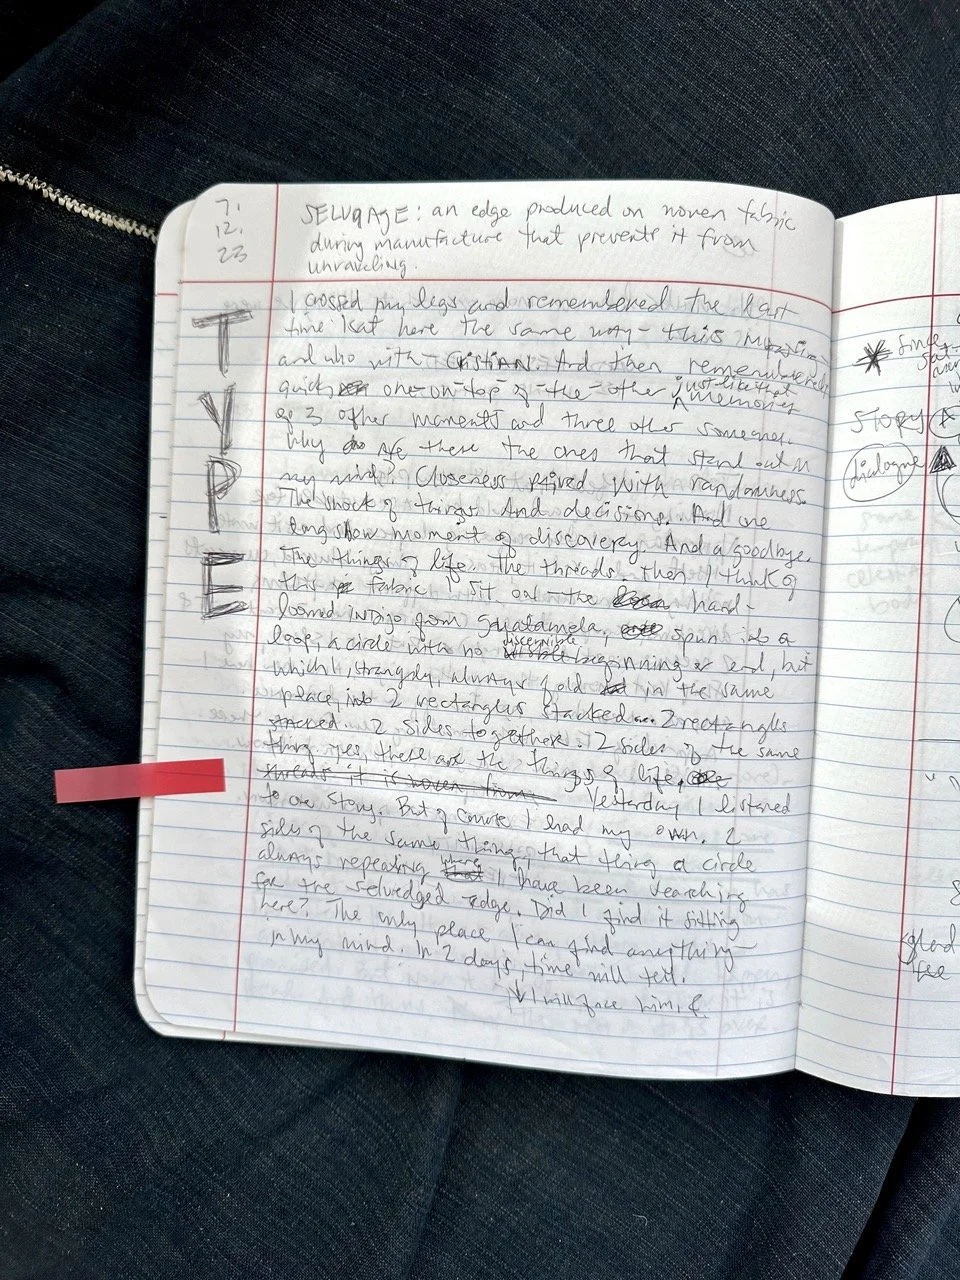 7.
12.
23
SELVAGE: an edge produced on woven fabric
during manufacture that prevents it from
unraveling.
T
Y
P
E
I crossed my legs and remembered the last
time I sat here the same way - this
and who with - CRISTIAN. And then remembered
quick one-on-top-of-the-other just like that memories
of 3 other moments and three other someones.
Why are these the ones that stand out in
my mind? Closeness paired with randomness.
The shock of things And decisions. And one
long slow moment of discovery. And a goodbye.
The things of life, the threads. Then I think of
this fabric I sit on - the hand-
loomed INDIgo from Guatamela, spun into a
loop, a circle with no discernible beginning or end, but
which I, strangely, always fold in the same
place, into 2 rectangles stacked. 2 rectangles
stacked. 2 sides together. 2 sides of the same
thing. yes, these are the things of life,
threads it is woven from Yesterday I listened
to one story. But of course I had my own. 2
sides of the same thing, that thing a circle
always repeating where I have been searching
for the selvedged edge. Did I find it sitting
here? The only place I can find anything -
in my mind. In 2 days, time will tell.
I will face him, &
Since
STORY
dialogue